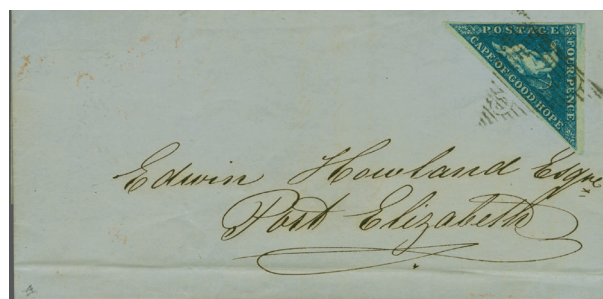 POSTAGE
FOUR PENCE
CAPE OF GOOD HOPE
Edwin Howland Esqre
Port Elizabeth